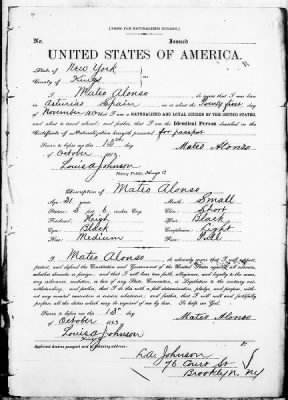 [FORM FOR NATURALIZED CITIZEN.]
No. Issued
UNITED STATES OF AMERICA.
State of New York
County of Kings ss:
I Mateo Alonso do swear that I was born
in Asturias Spain on or about the Twenty first day
of November 18 that I am a NATURALIZED AND LOYAL CITIZEN OF THE UNITED STATES
and about to travel abroad; and further, that I am the Identical Person described in the
Certificate of Naturalization herewith presented for passport
Sworn to before me this 13th Mateo Alonso
of October 1883
Louis A Johnson
Notary Public, Kings C
Description of Mateo Alonso
Age: 31 years Mouth: Small
Stature: 5 feet 6 inches, Eng. Chin: Short
Forehead: High Hair: Black
Eyes: Black Complexion: Light
Nose: Medium Face: Full
I Mateo Alonso do solemnly swear that I will support,
protect, and defend the Constitution and Government of the United States against all enemies,
whether domestic or foreign; and that I will bear true faith, allegiance, and loyalty to the same,
any ordinance, resolution, or law of any State, Convention, or Legislature to the contrary notwithstanding;
and further, that I do this with a full determination, pledge, and purpose, without
any mental reservation or evasion whatsoever; and further, that I will well and faithfully
perform all the duties which may be required of me by law. So help me God.
Sworn to before me this 13th Mateo Alonso
of October 1883
Louis A Johnson
Applicant desires passport sent to following address:
L.A. Johnson
76 Court St
Brooklyn NY